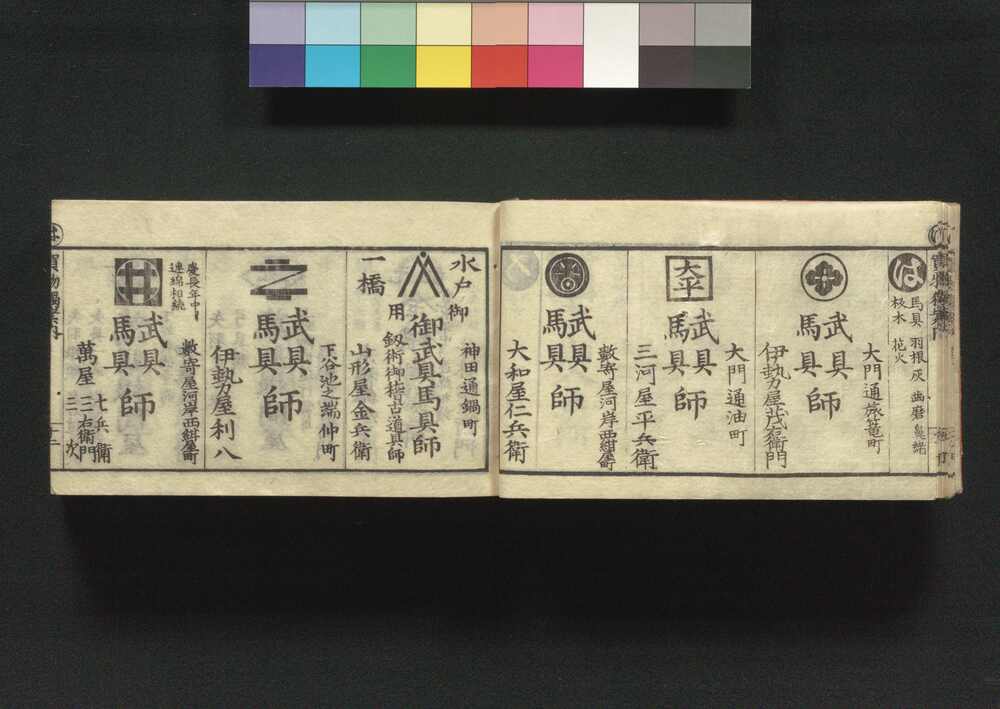 は
馬具 羽根 灰 歯磨 鼻緒
板木 花火
大門通旅篭町
武具
馬具
師
伊勢屋茂右衛門
大門通油町
太平
武具
馬具
師
三河屋平兵衛
数寄屋河岸西紺屋町
武具
馬具
師
大和屋仁兵衛
水戸
一橋
御用
神田通鍋町
御武具馬具師
釼術御稽古道具師
山形屋金兵衛
下谷池之端仲町
武具
馬具
師
伊勢屋利八
慶長年中ヨリ
連綿相続
数寄屋河岸西紺屋町
井
武具
馬具
師
萬屋
七兵衛
三右衛門